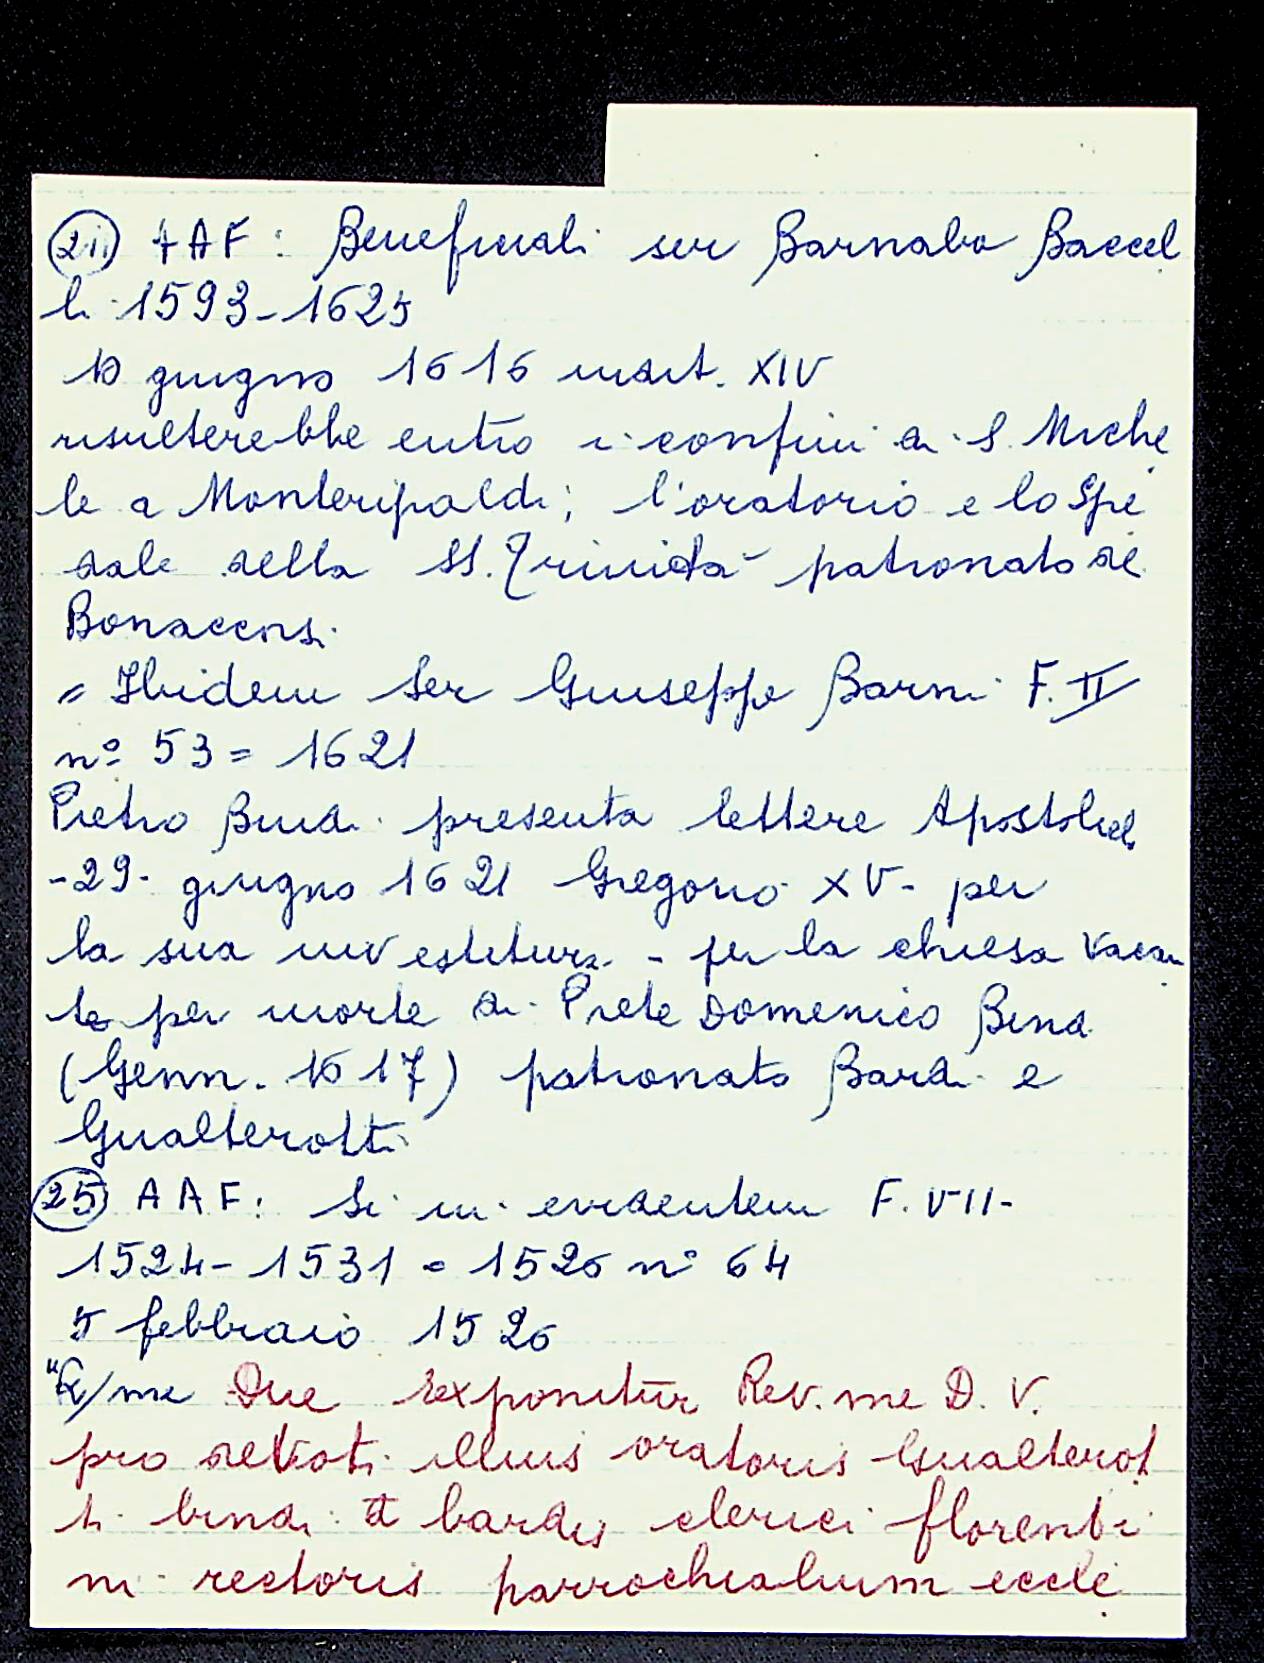 AAF: Beneficiali ser Barnaba Baccel
li 1593-1625
10 giugno 1616 insert. XIV
risulterebbe entro i confini di S. Miche
le a Monteripaldi; l'oratorio e lo Spe
dale della SS. Trinità patronato de
Bonaccorsi
= Ibidem Ser Giuseppe Barni F. II
n° 53 = 1621
Pietro Bindi presenta lettere Apostolich
-29- giugno 1621 Gregorio XV- per
la sua investitura - per la chiesa Vacan
te per morte di Prete Domenico Bindi
(Genn. 1617) patronato Bardi e
Gualterotti
(25) AAF: Si in evidentem F. VII-
1524-1531 = 1526 n° 64
5 febbraio 1526
Dne exponitur Rev.me D. V.
pro devoti illius oratoris Gualterot
ti bindi de bardis clerici florenti
ni rectoris parrochialium eccle